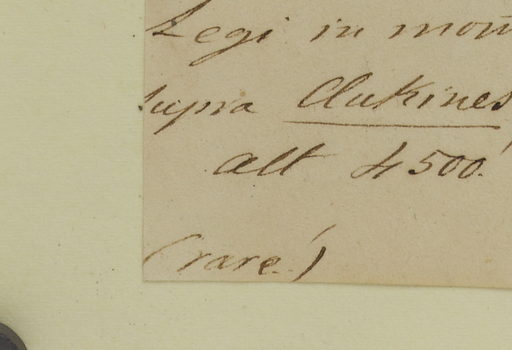 Legi in mon
supra Clukines
alt 4500'.
(rare!)